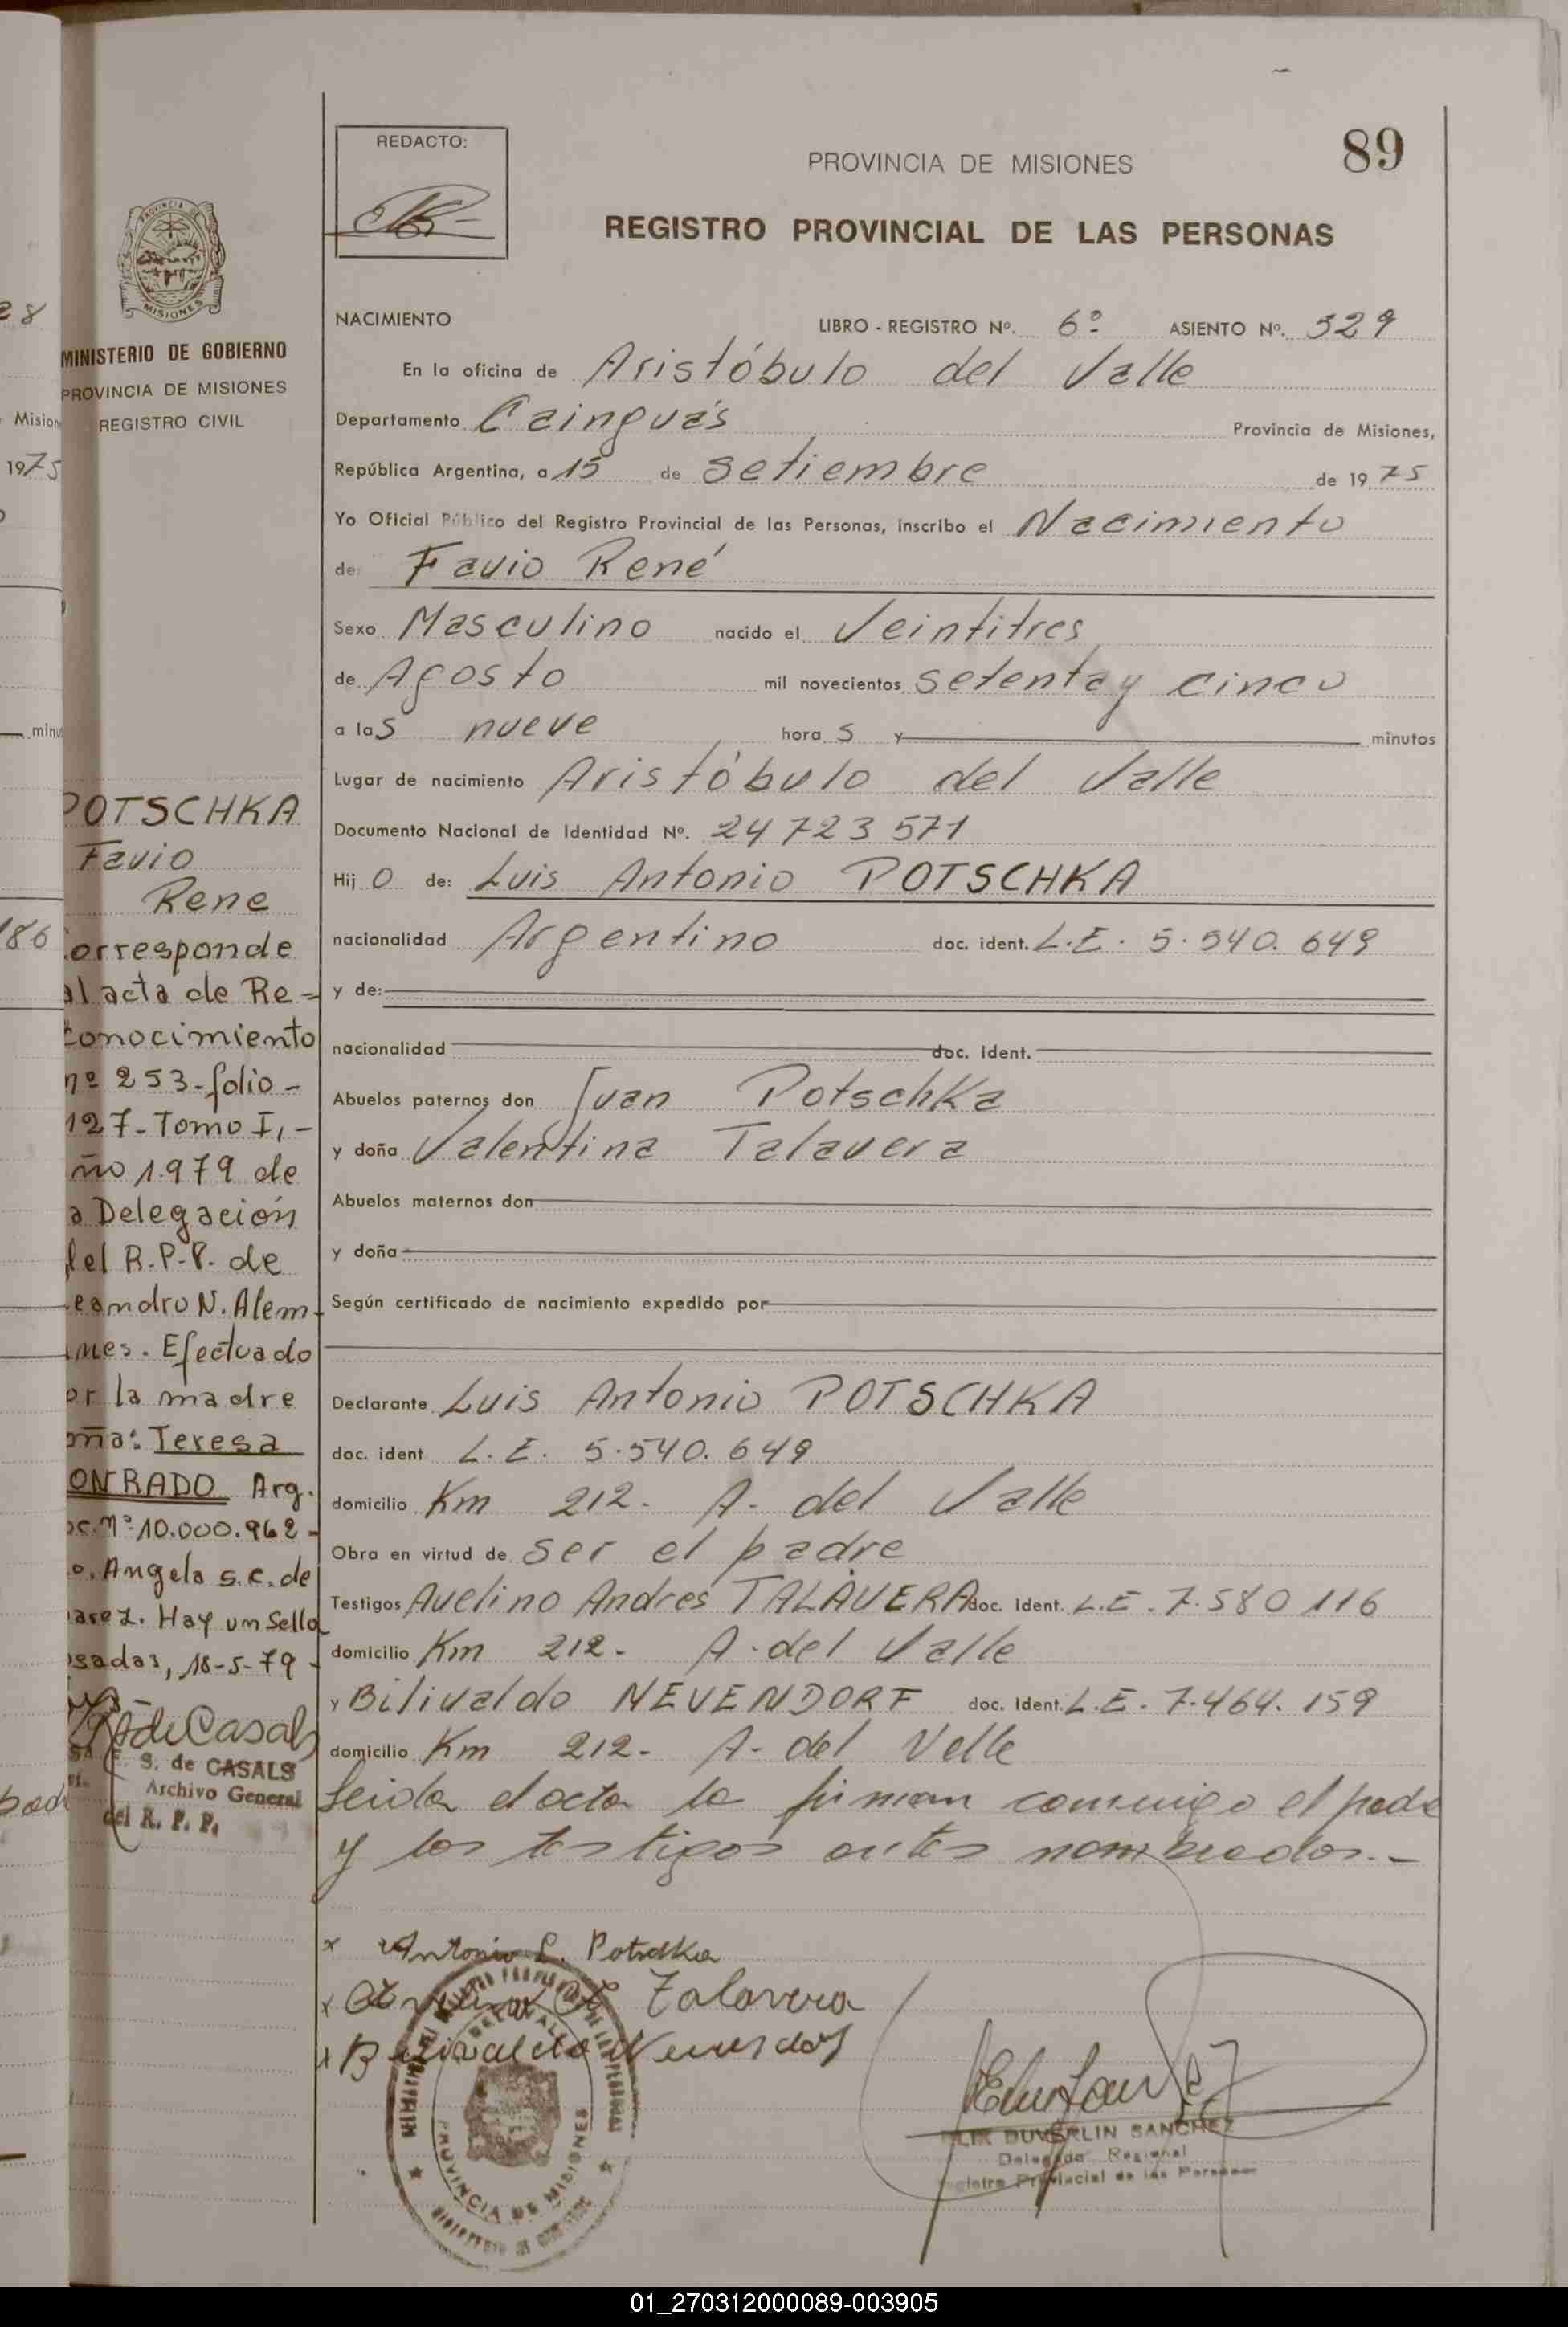 REDACTO:
89
PROVINCIA DE MISIONES
REGISTRO PROVINCIAL DE LAS PERSONAS
NACIMIENTO
LIBRO - REGISTRO Nº. 6º ASIENTO Nº. 329
En la oficina de Aristóbulo del Valle
Departamento Cainguás Provincia de Misiones,
República Argentina, a 15 de setiembre de 1975
Yo Oficial Público del Registro Provincial de las Personas, inscribo el Nacimiento
de: Favio René
Sexo Masculino nacido el Veintitres
de Agosto mil novecientos setenta y cinco
a las nueve horas y minutos
Lugar de nacimiento Aristóbulo del Valle
Documento Nacional de Identidad Nº. 24 723 571
Hijo de: Luis Antonio POTSCHKA
nacionalidad Argentino doc. ident. L.E. 5.540.649
y de:
nacionalidad doc. Ident.
Abuelos paternos don Juan Potschka
y doña Valentina Talavera
Abuelos maternos don
y doña
Según certificado de nacimiento expedido por
Declarante Luis Antonio POTSCHKA
doc. ident L.E. 5.540.649
domicilio Km 212- A. del Valle
Obra en virtud de ser el padre
Testigos Avelino Andres TALAVERA doc. Ident. L.E. 7.580 116
domicilio Km 212- A. del Valle
y Bilivaldo NEVENDORF doc. Ident. L.E. 7.464.159
domicilio Km 212- A. del Valle
Leida el acta la firman conmigo el padre
y los testigos antes nombrados.-
x Antonio L. Potschka
x Talavera
x
PROVINCIA DE MISIONES
FELIX DUVERLIN SANCHEZ
Delegado Regional
Registro Provincial de las Personas
PROVINCIA DE
MISIONES
MINISTERIO DE GOBIERNO
PROVINCIA DE MISIONES
REGISTRO CIVIL
POTSCHKA
Favio
Rene
orresponde
al acta de Re-
conocimiento
nº 253-folio-
127-Tomo I,-
ño 1.979 de
a Delegación
del R.P.P. de
eandro N. Alem-
nes. Efectuado
or la madre
oña: Teresa
ONRADO Arg.
oc.Nº 10.000.962-
o. Angela s.c. de
arez. Hay un Sello
sadas, 18-5-79-
A de Casals
E. S. de CASALS
Archivo General
del R. P. P.
28
Mision
1975
minu
186
01_270312000089-003905